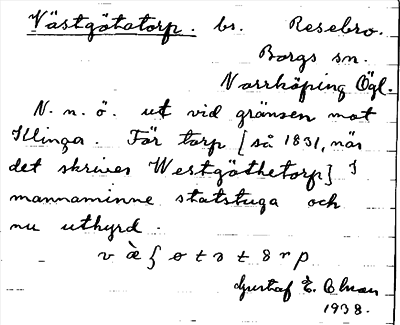 Västgötatorp. br. Resebro.
Borgs sn.
Norrköping Ögl.
N. n. ö. ut vid gränsen mot
Illinga. För torp [så 1831, när
det skrives Westgöthetorp] i
mannaminne statstuga och
nu uthyrd.
Gustaf E.
1938.